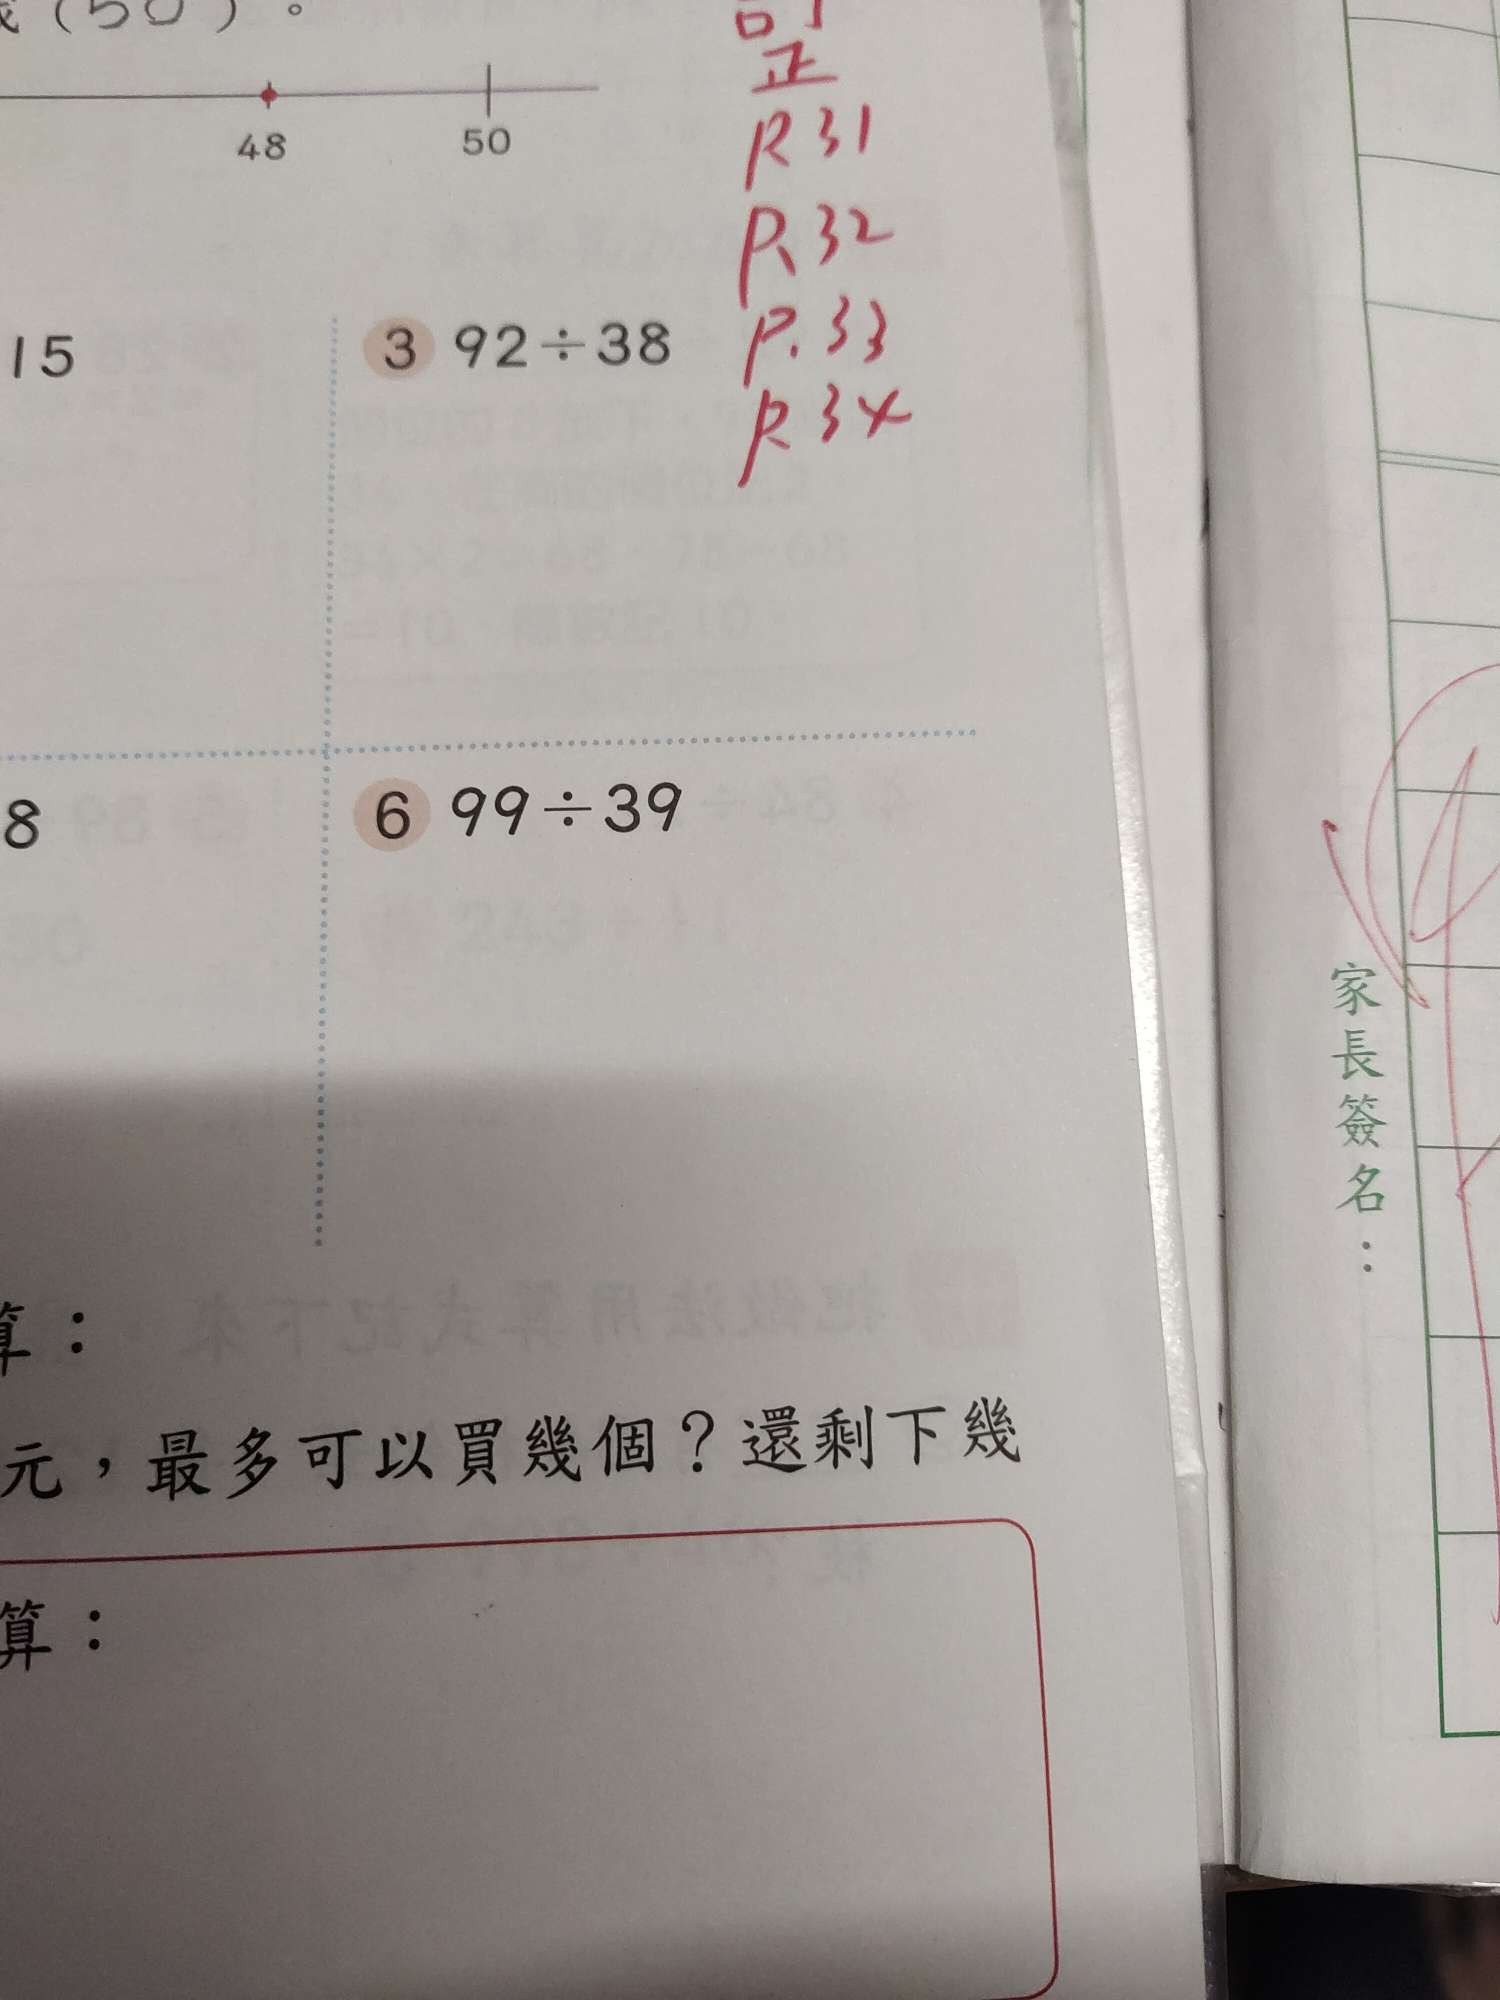 (50)。
48 50
訂
正
P.31
P.32
P.33
P.34
15
3 92÷38
8
6 99÷39
算：
元，最多可以買幾個？還剩下幾
算：
家長簽名：